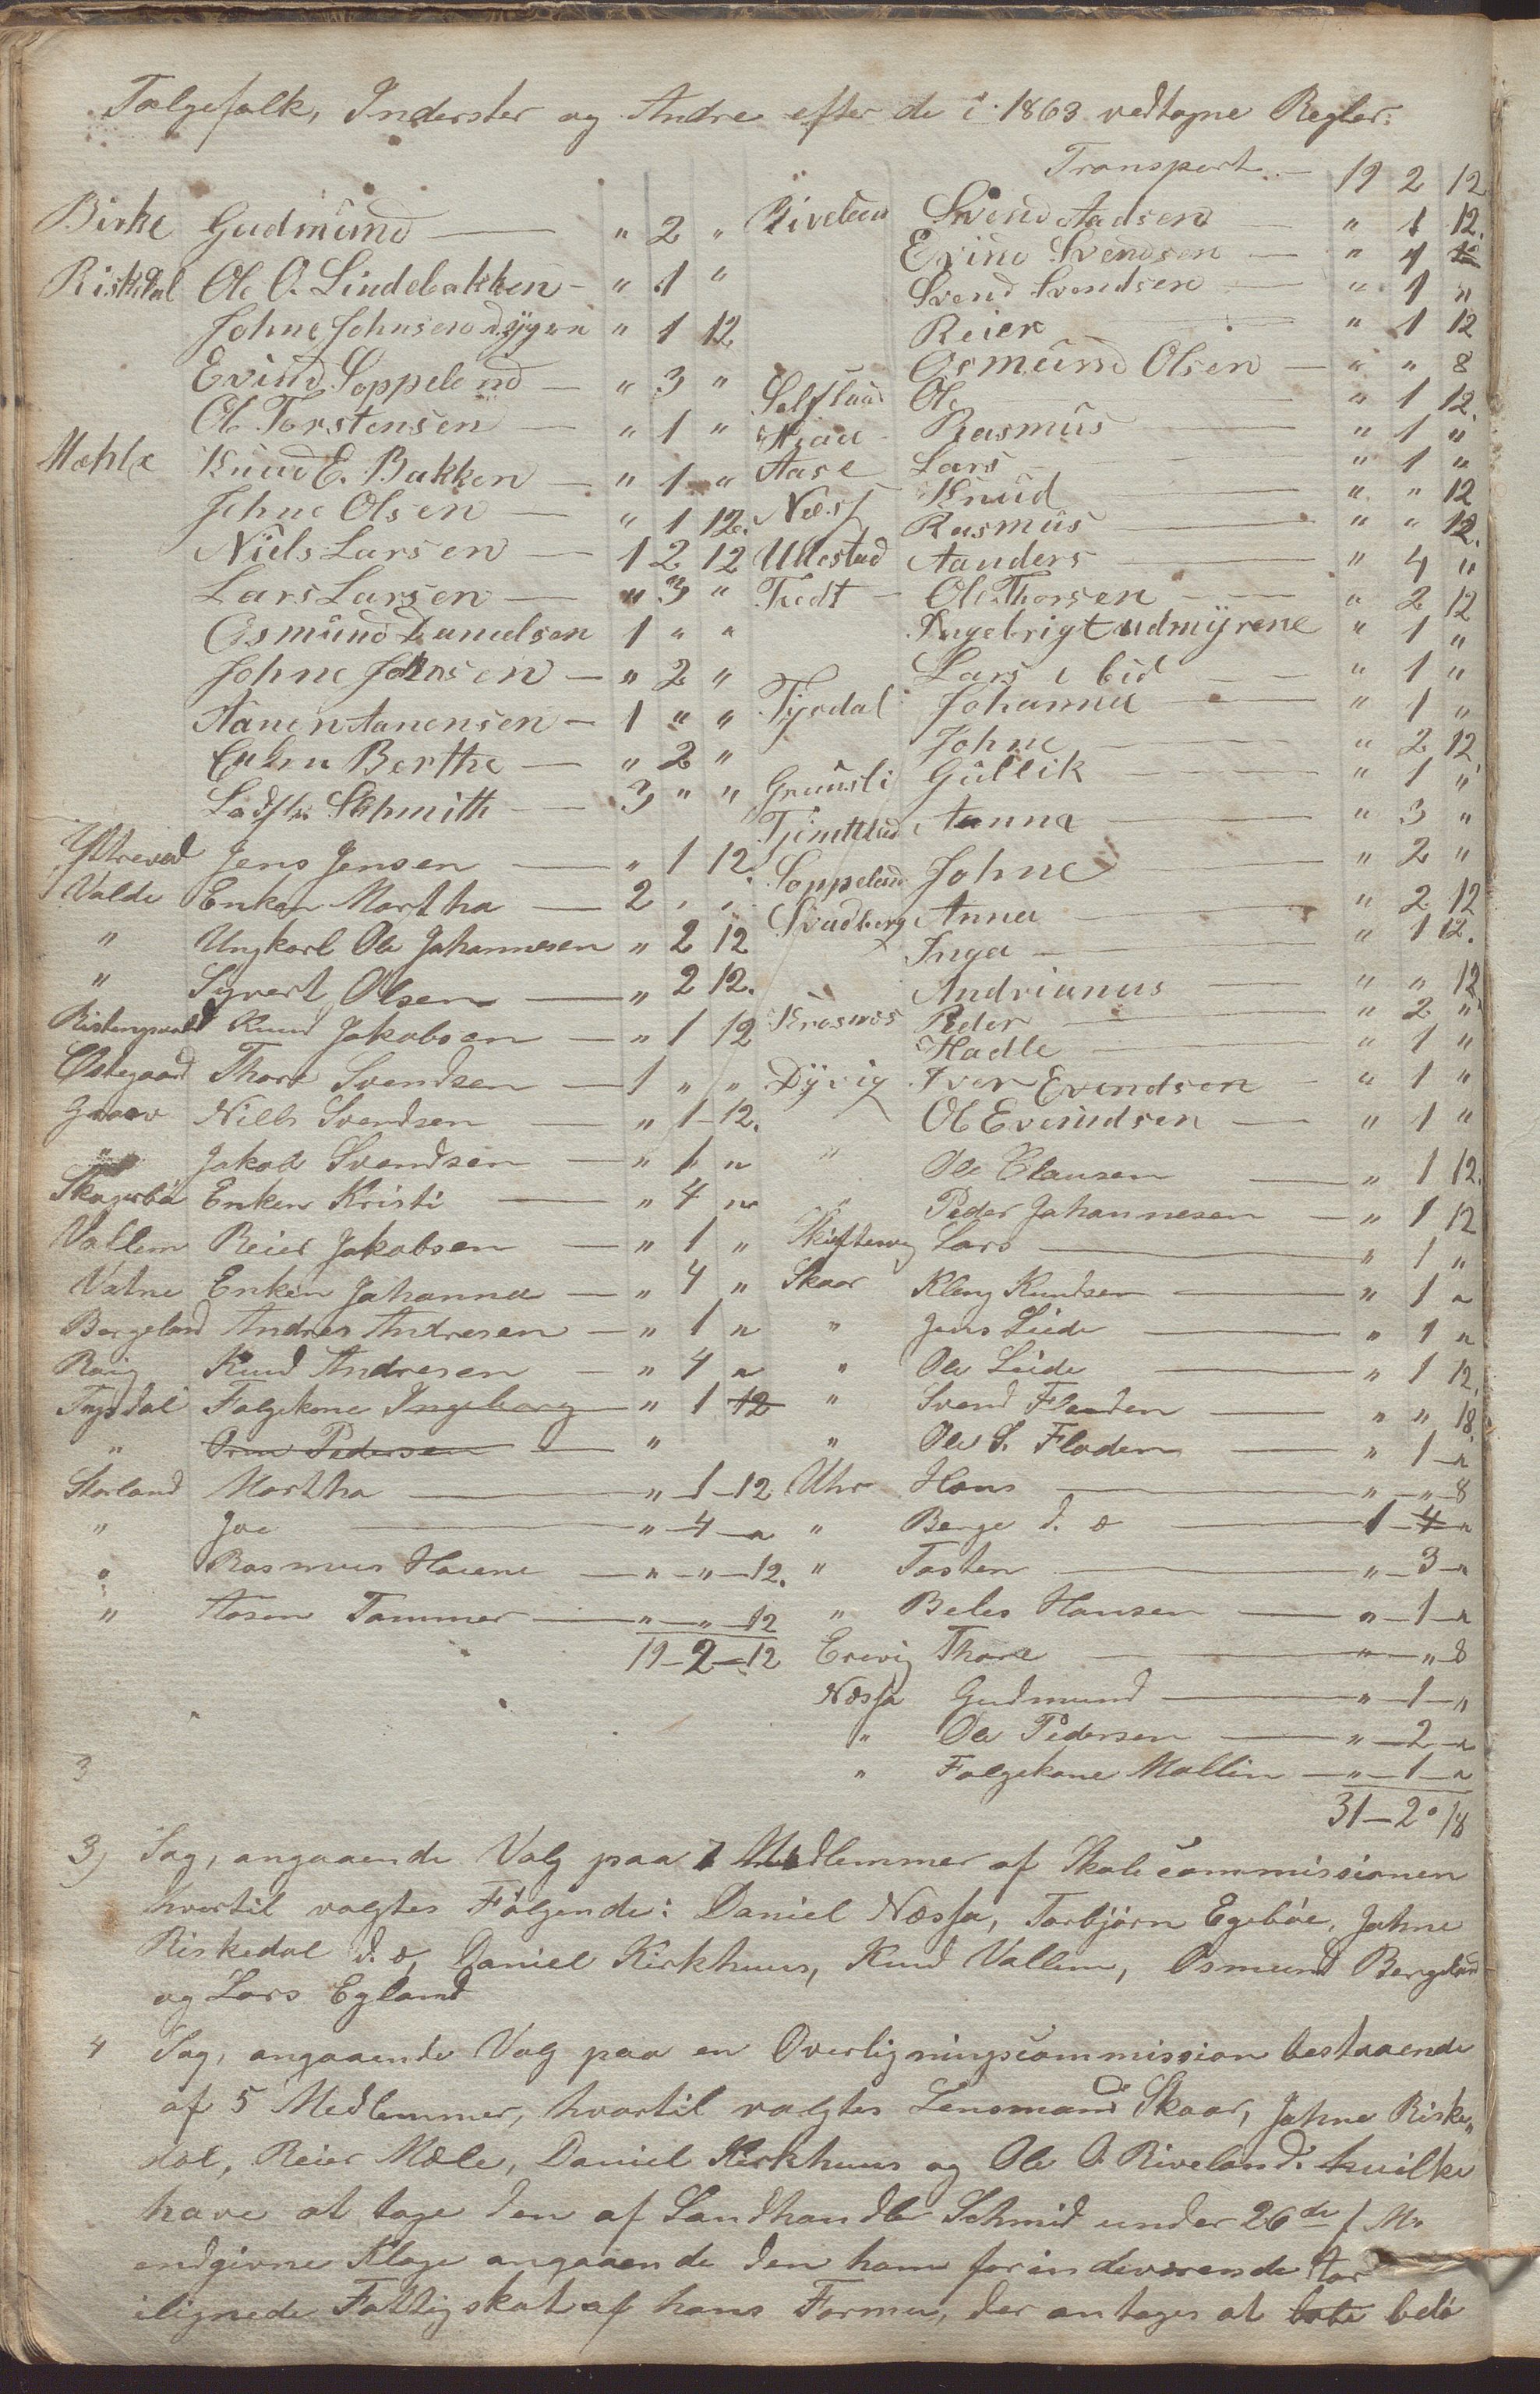 Følgefolk, Inderster og Andre efter de i 1863 vedtagne Regler:
Birke Gudmund — " 2 "
Riskedal Ole O. Lindebakken - " 1 "
Johne Johnsen Dygen " 1 12
Evind Soppeland — " 3 "
Ole Torstensen — " 1 "
Mæhle Knud E. Bakken — " 1 "
Johne Olsen — " 1 12.
Niels Larsen — 1 2 12
Lars Larsen — " 3 "
Osmund Danielsen 1 " "
Johne Johnsen — " 2 "
Aanen Aanensen — 1 " "
Enken Berthe — " 2 "
Ladhr. Schmith — 3 " "
Yttrevad Jens Jensen — " 1 12.
Valde Enken Martha — 2 " "
" Ungkarl Ole Johannesen " 2 12
" Syvert Olsen — " 2 12.
Knud Jakobsen — " 1 12
Østegaard Thore Svendsen — 1 " "
Gaar Niels Svendsen — " 1 12.
" Jakob Svendsen — " 1 "
Skogerbø Enken Kristi — " 4 "
Vallem Reier Jakobsen — " 1 "
Vatne Enken Johanna — " 4 "
Bergeland Andres Andresen — " 1 "
Røvig Knud Andresen — " 4 "
Tysdal Følgekone Ingeborg — " 1 12
" Orm Pedersen — "
Starland Martha — " 1 12
" Joe — " 4 "
" Rasmus Hauene — " " 12.
" Aasen Tømmer — " " 12
19 - 2 - 12
Transport — 19 2 12
Riveland Svend Aadsen — " 1 12.
Evind Svendsen — " 4 12
Svend Svendsen — " 1 "
Reier — " 1 12
Osmund Olsen — " " 8
Selfland Ole — " 1 12.
Hjaa Rasmus — " 1 "
Aase Lars — " 1 "
Næsf Knud — " " 12
Rasmus — " " 12.
Ullestad Aanders — " 4 "
Tvedt Ole Thorsen — " 2 12
Ingebrigt Udmyrene " 1 "
Lars i bid — " 1 "
Tysdal Johanna — " 1 "
Johne — " 2 12
Grunsli Gullik — " 1 "
Tjimtland Aanna — " 3 "
Soppeland Johne — " 2 "
Svadberg Anna — " 2 12
Inga — " 1 12.
Andrianus — " " 12
Krosnes Peder — " 2 "
Hadle — " 1 "
Dyvig Iver Evendsen — " 1 "
Ole Evindsen — " 1 "
" Ole Clausen — " 1 12.
" Peder Johannesen — " 1 12
Skiftesvig Lars — " 1 "
Skaar Kleng Knudsen — " 1 "
" Jens Liede — " 1 "
" Ole Liede — " 1 12.
" Svend Fladen — " " 18.
" Ole S. Fladen — " 1 "
Uhr Hans — " " 8
" Berge d. o — 1 4 "
" Tosten — " 3 "
" Beles Hansen — " 1 "
Erevig Thore — " " 8
Næssa Gudmund — " 1 "
" Ole Pedersen — " 2 "
" Følgekone Mallin — " 1 "
31 - 2 " 18
3
3) Sag, angaaende Valg paa 7 Medlemmer af Skolecommissionen
hvortil valgtes Følgende: Daniel Næssa, Torbjørn Egebøe, Johne
Riskedal d. o, Daniel Kirkhuus, Knud Vallem, Osmund Bergeland
og Lars Egland
4 Sag, angaaende Valg paa en Overligningscommission bestaaende
af 5 Medlemmer, hvortil valgtes Lensmand Skaar, Johne Riske„
dal, Reier Mæle, Daniel Kirkhuus og Ole O. Riveland. hvilke
have at tage den af Landhandler Schmid under 26de f. M.
indgivne Klage angaaende den ham for indeværende
ilignede Fattigskat af hans Formue, der antages at bete belø